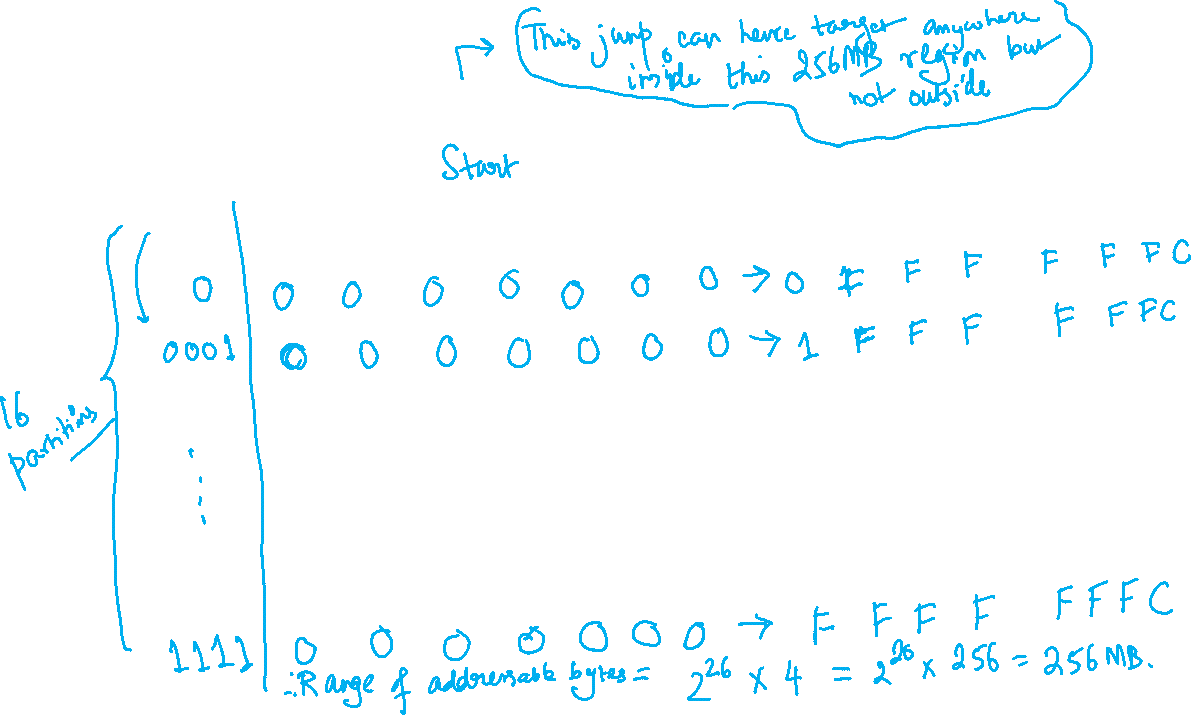 This jump, can hence target anywhere
inside this 256MB region but
not outside
Start
0 0 0 0 0 0 0 0 → 0 F F F F F F C
0001 0 0 0 0 0 0 0 → 1 F F F F F F C
16
partitions
1111 0 0 0 0 0 0 0 → F F F F F F F C
∴ Range of addressable bytes = 2^26 × 4 = 2^20 × 256 = 256 MB.